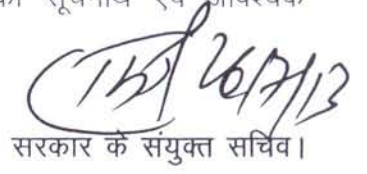 सूचनार्थ एवं आवश्यक
26/7/13
सरकार के संयुक्त सचिव।